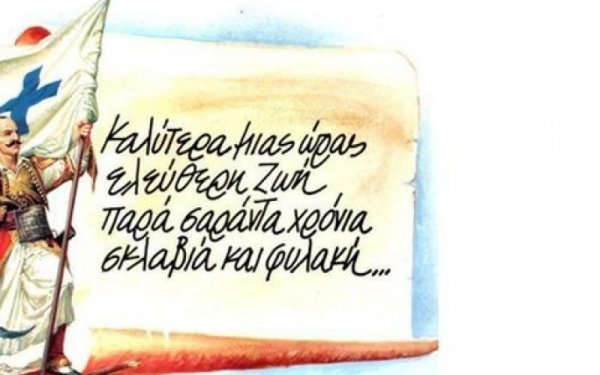 Καλύτερα μιας ώρας
ελεύθερη ζωή
παρά σαράντα χρόνια
σκλαβιά και φυλακή...